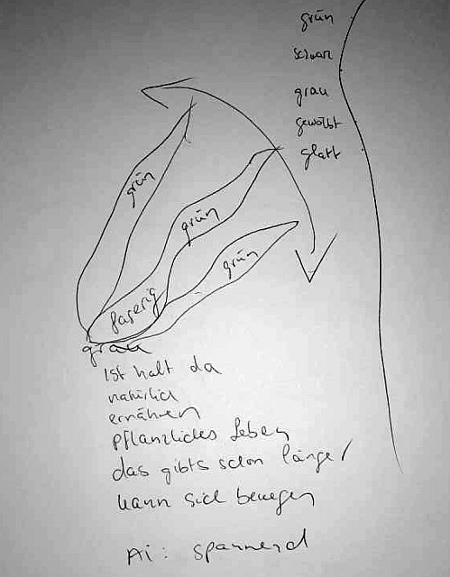 grün
schwarz
grau
gewölbt
glatt
grün
grün
grün
faserig
grau
ist halt da
natürlich
ernähren
pflanzliches Leben
das gibts schon länger
kann sich bewegen
Ai: spannend